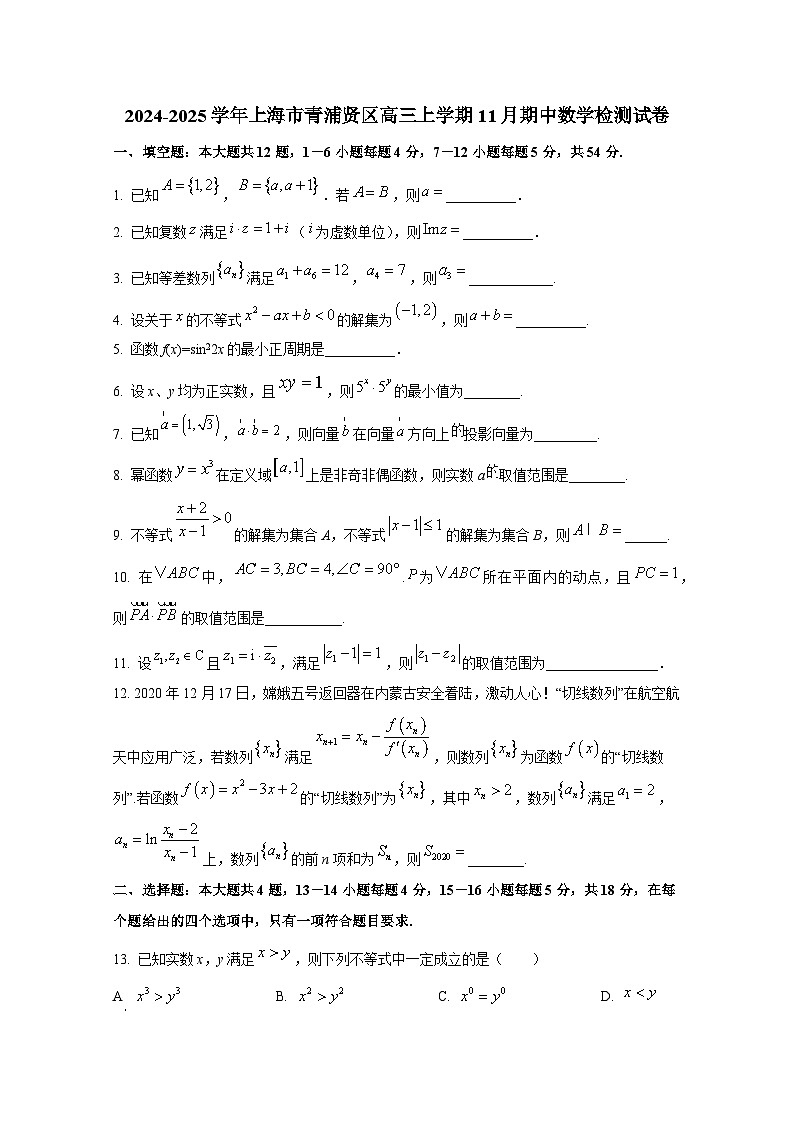 2024-2025学年上海市青浦贤区高三上学期11月期中数学检测试卷
一、填空题：本大题共12题，1—6小题每题4分，7—12小题每题5分，共54分.
1. 已知 A={1,2}，B={a,a+1}．若 A=B，则 a=__________．
2. 已知复数 z 满足 i·z=1+i（i 为虚数单位），则 Imz=__________．
3. 已知等差数列{aₙ}满足 a₁+a₆=12，a₄=7，则 a₃=____________.
4. 设关于 x 的不等式 x²−ax+b<0 的解集为(−1,2)，则 a+b=__________.
5. 函数 f(x)=sin²2x 的最小正周期是__________．
6. 设 x、y 均为正实数，且 xy=1，则 5ˣ·5ʸ 的最小值为________.
7. 已知 a=(1,√3)，a·b=2，则向量 b 在向量 a 方向上的投影向量为_________.
8. 幂函数 y=x³ 在定义域[a,1]上是非奇非偶函数，则实数 a 的取值范围是________.
9. 不等式 (x+2)/(x−1)>0 的解集为集合 A，不等式 |x−1|≤1 的解集为集合 B，则 A I B=______.
10. 在∨ABC 中，AC=3,BC=4,∠C=90°.P 为∨ABC 所在平面内的动点，且 PC=1，
则 PA·PB 的取值范围是___________.
11. 设 z₁,z₂∈C 且 z₁=i·z̅₂，满足 |z₁−1|=1，则 |z₁−z₂| 的取值范围为________________.
12. 2020年12月17日，嫦娥五号返回器在内蒙古安全着陆，激动人心！“切线数列”在航空航
天中应用广泛，若数列{xₙ}满足 xₙ₊₁=xₙ−f(xₙ)/f′(xₙ)，则数列{xₙ}为函数 f(x) 的“切线数
列”.若函数 f(x)=x²−3x+2 的“切线数列”为{xₙ}，其中 xₙ>2，数列{aₙ}满足 a₁=2，
aₙ=ln (xₙ−2)/(xₙ−1) 上，数列{aₙ}的前 n 项和为 Sₙ，则 S₂₀₂₀=________.
二、选择题：本大题共4题，13—14小题每题4分，15—16小题每题5分，共18分，在每
个题给出的四个选项中，只有一项符合题目要求.
13. 已知实数 x，y 满足 x>y，则下列不等式中一定成立的是（　　）
A. x³>y³ B. x²>y² C. x⁰=y⁰ D. x<y